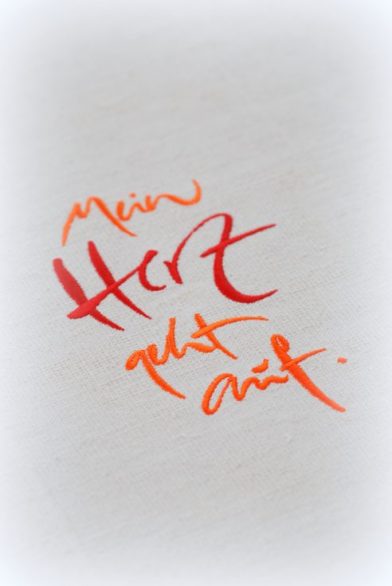 Mein
Herz
geht
auf.